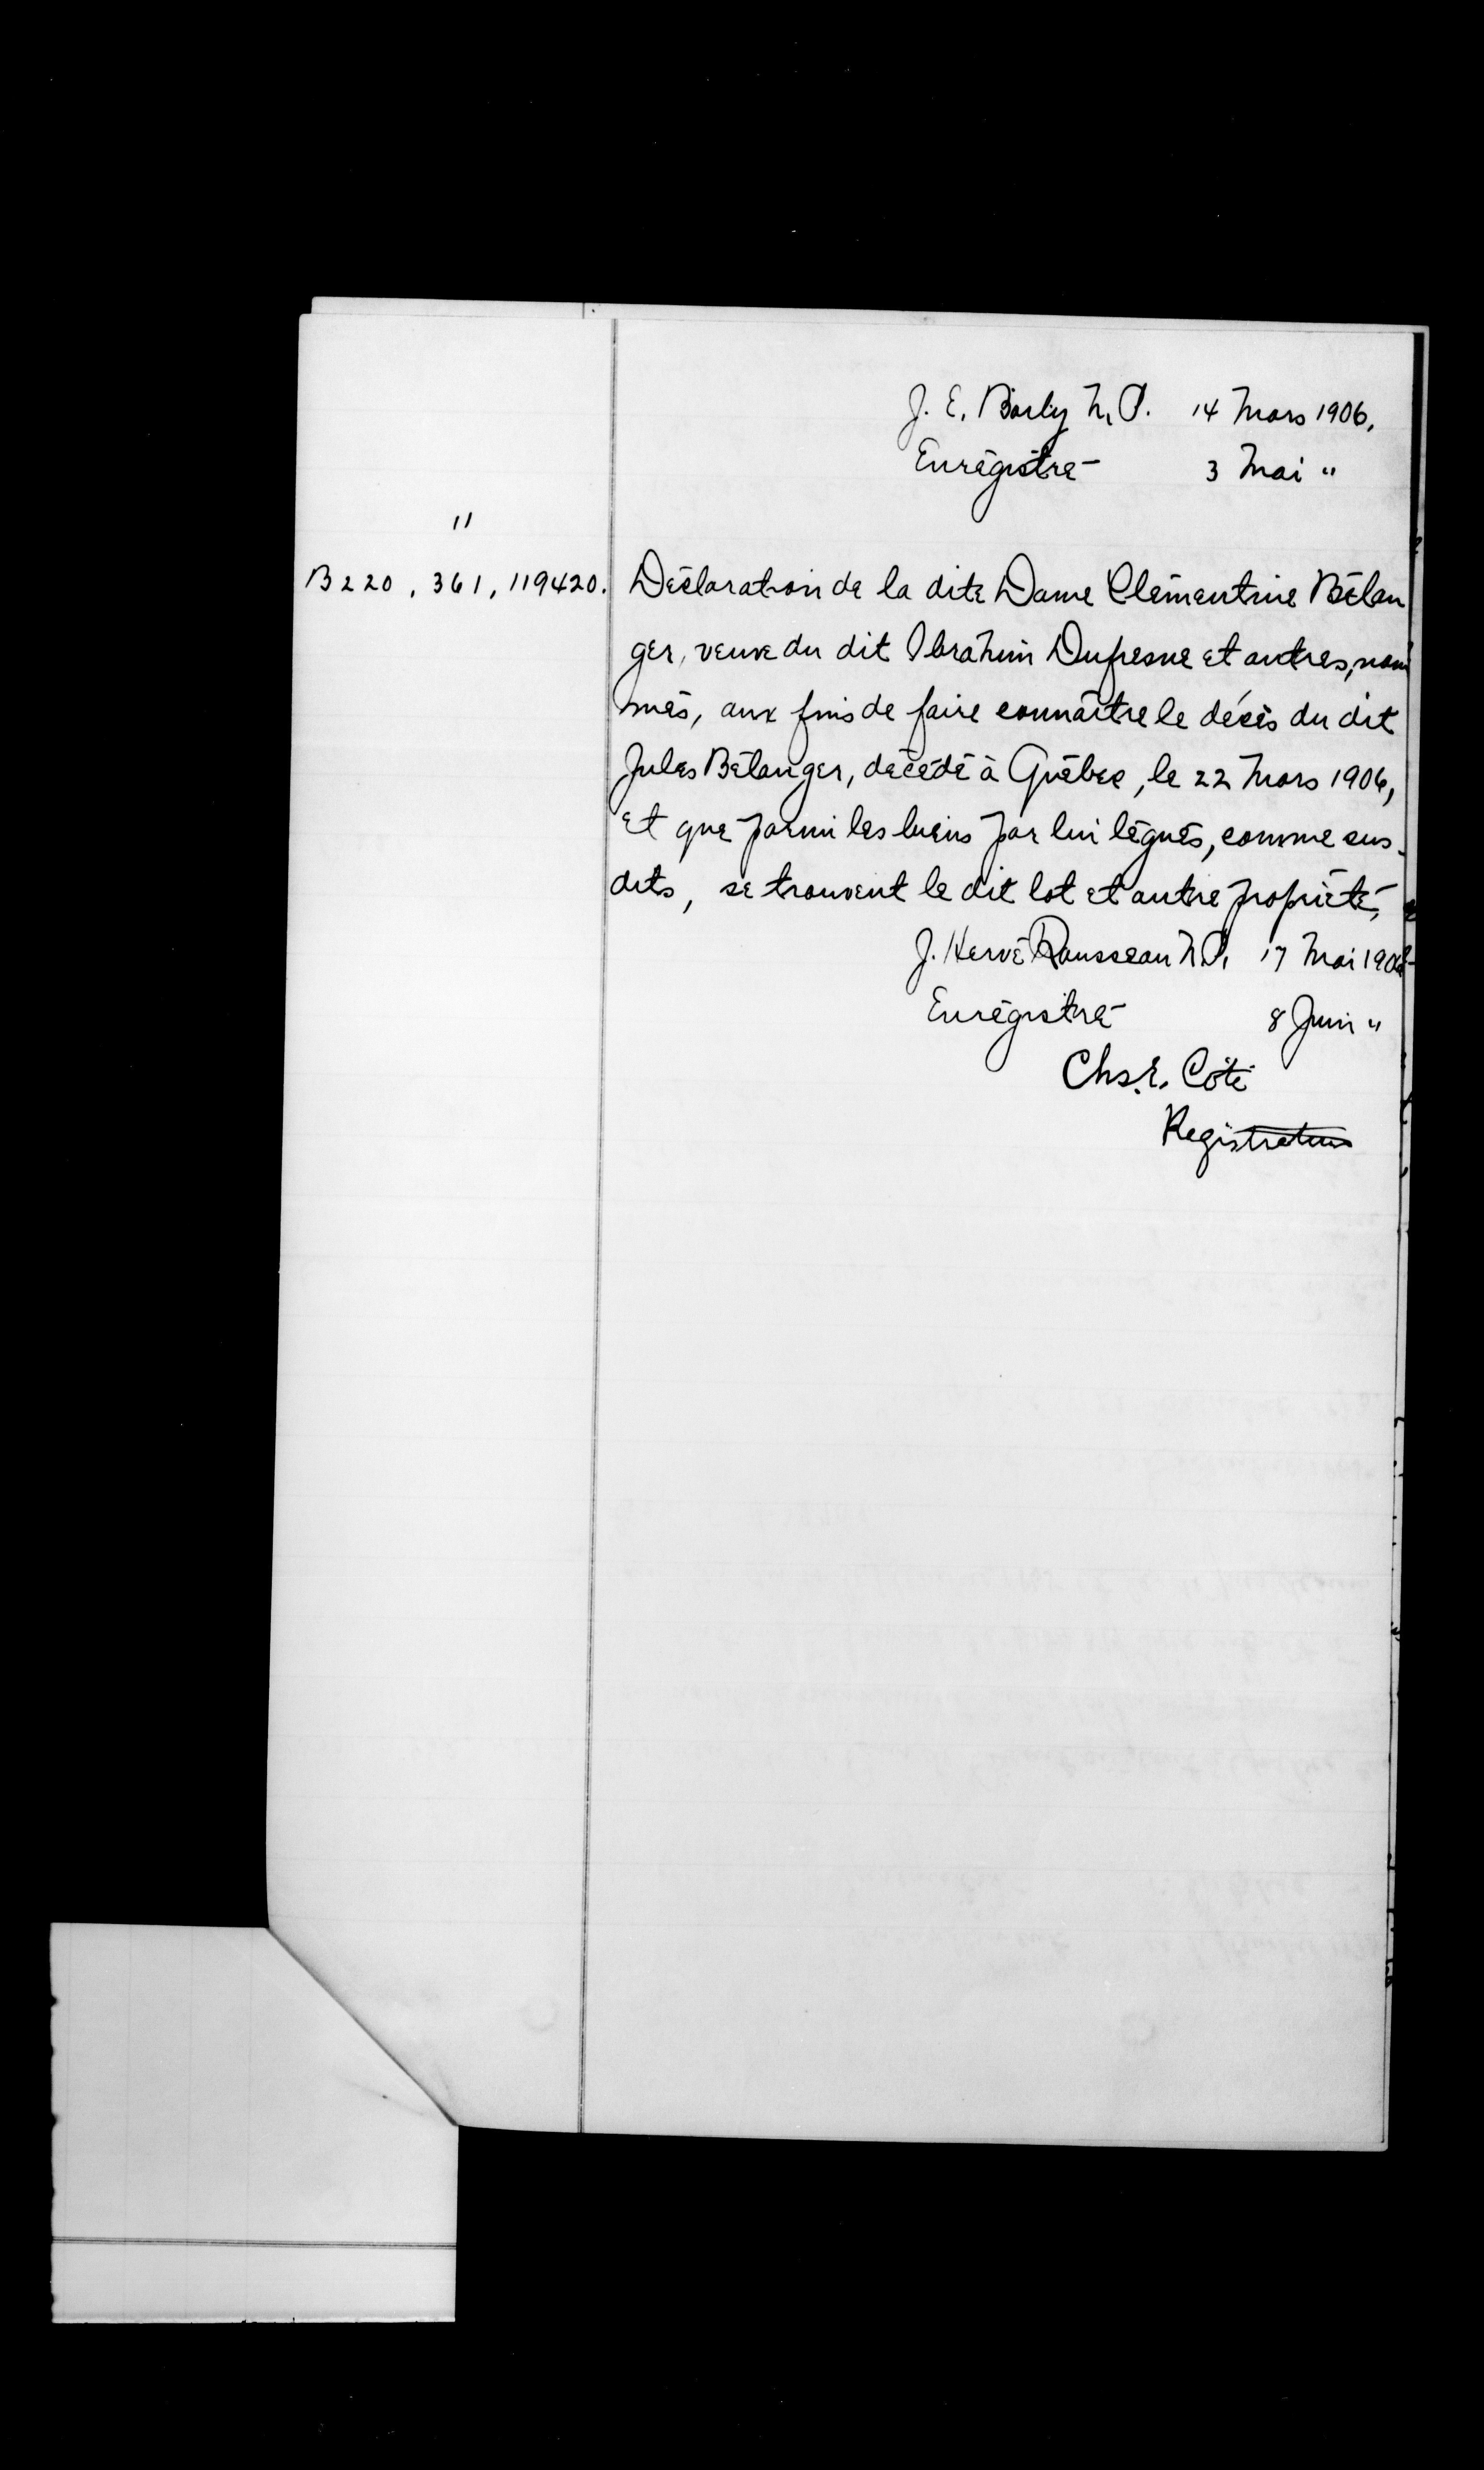 J. E. Boily N.P. 14 Mars 1906.
Enrégistré 3 Mai "
"
B 220, 361, 119420. Déclaration de la dite Dame Clémentine Bélan
ger, veuve du dit Ibrahim Dufresne et autres, nom
més, aux fins de faire connaître le décès du dit
Jules Bélanger, décédé à Québec, le 22 Mars 1906,
et que parmi les biens par lui légués, comme sus-
dits, se trouvent le dit lot et autre propriété,
J. Hervé Rousseau N.P. 17 Mai 1906
Enrégistré 8 Juin "
Chs. E. Côté
Registrateur